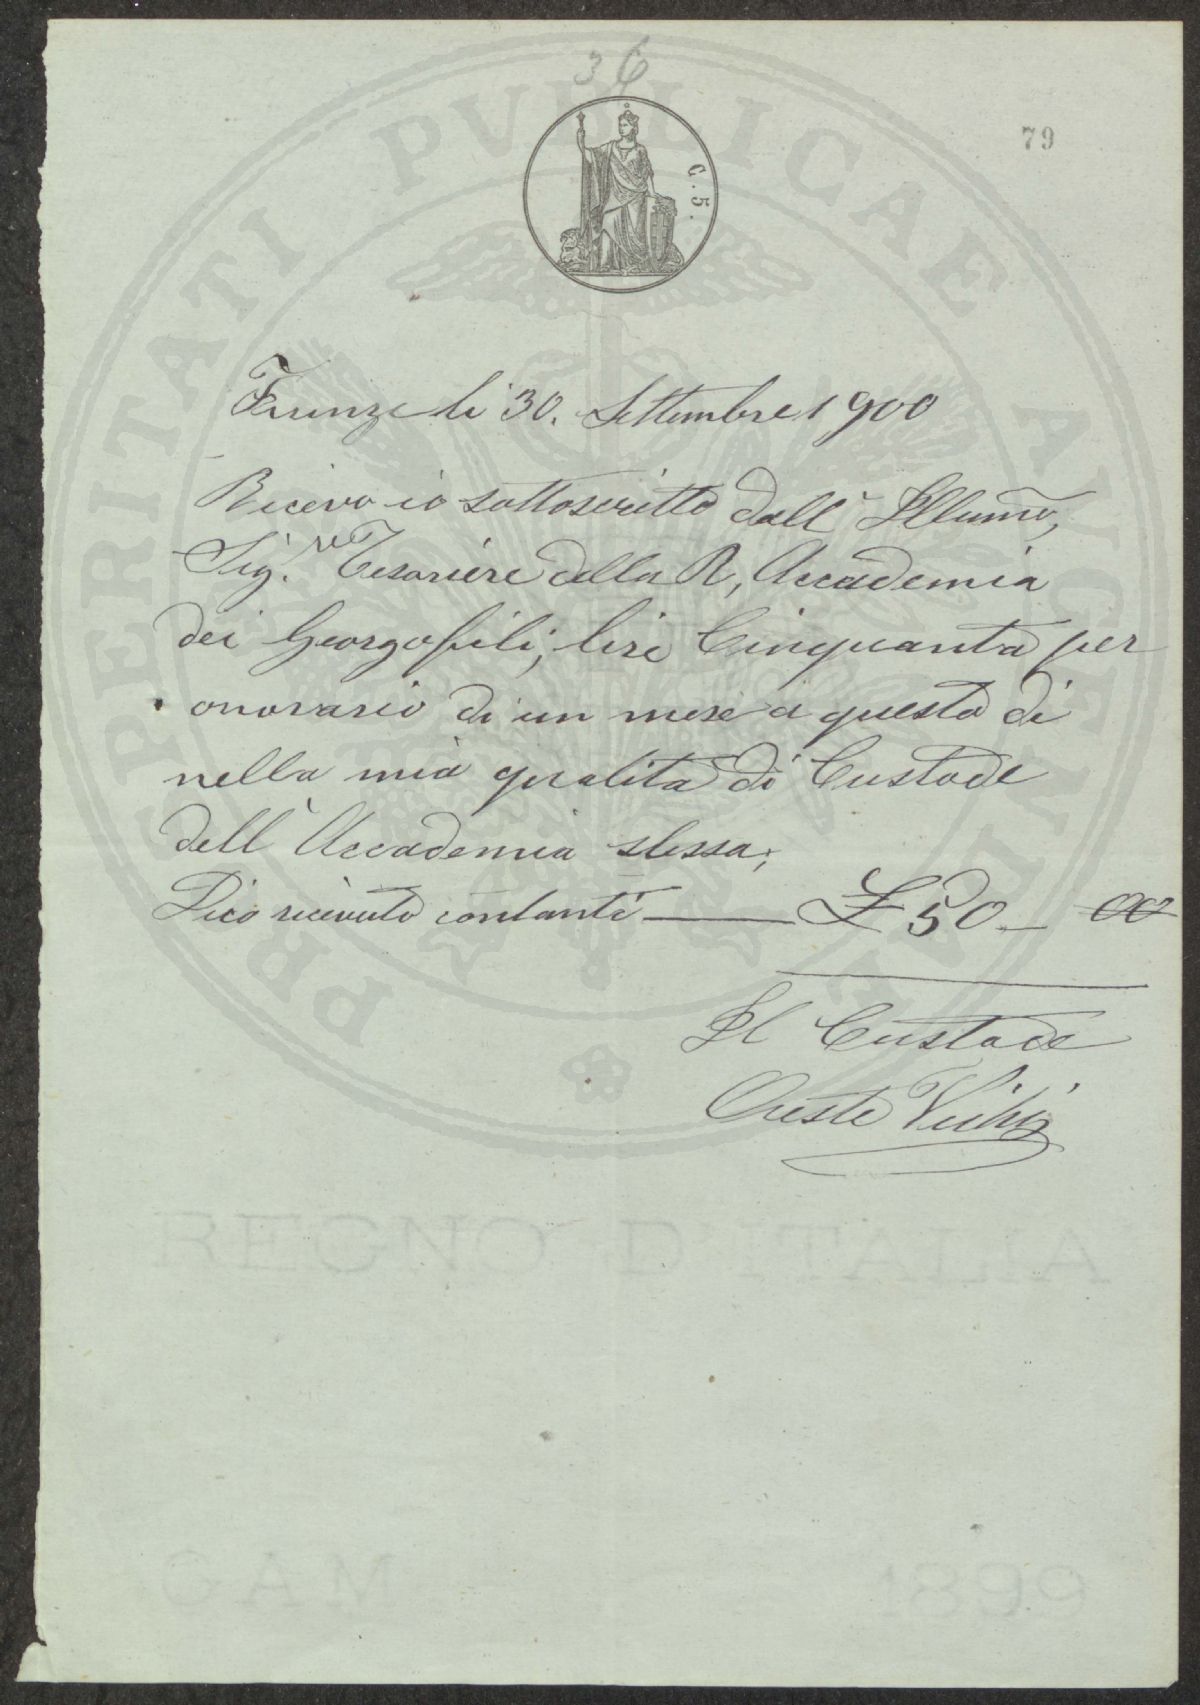 36
79
C. 5.
Firenze li 30. Settembre 1900
Ricevo io sottoscritto dall' Illumo,
Sig.re Tesoriere della R, Accademia
dei Georgofili, lire Cinquanta per
onorario di un mese a questo di
nella mia qualità di Custode
dell' Accademia stessa;
Dico ricevuto contanti — £ 50 — 00
Il Custode
Oreste Vichi
PROSPERITATI PVBLICAE AVGENDAE
REGNO D'ITALIA
GAM 1899